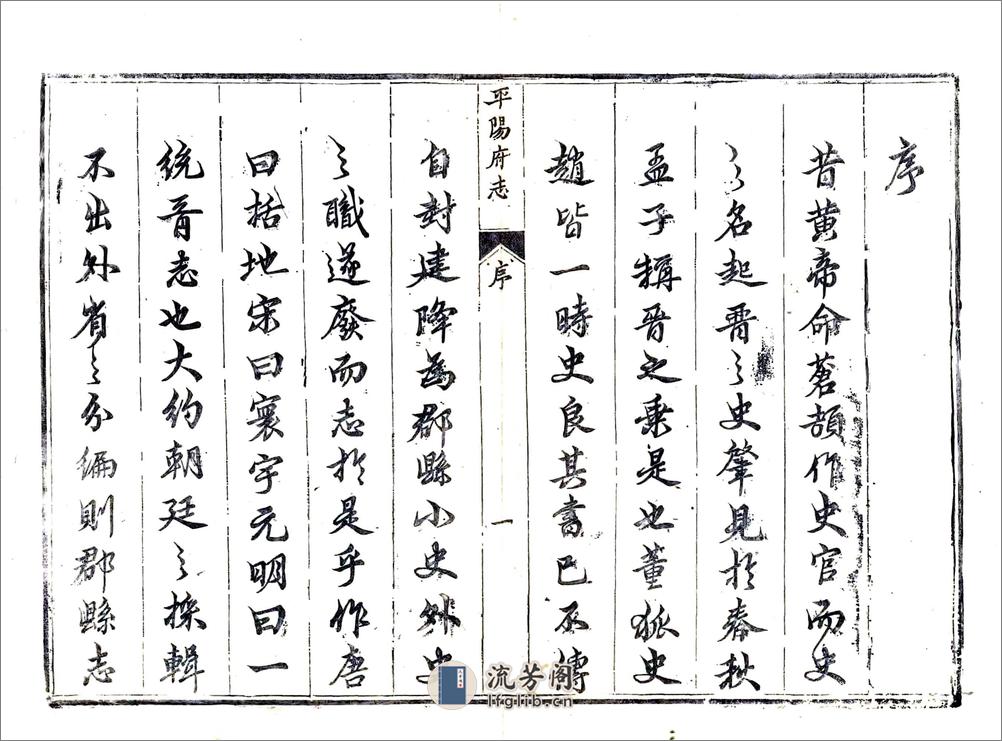 序
昔黄帝命蒼頡作史官而史
之名起晋之史肇見扵春秋
孟子稱晋之乗是也董狐史
趙皆一時史良其書已不傳
平陽府志
序
一
自封建降為郡縣小史外史
之職遂廢而志扵是乎作唐
曰括地宋曰寰宇元明曰一
統皆志也大約朝廷之採輯
不出外省之分編則郡縣志
流芳阁
lfglib.cn